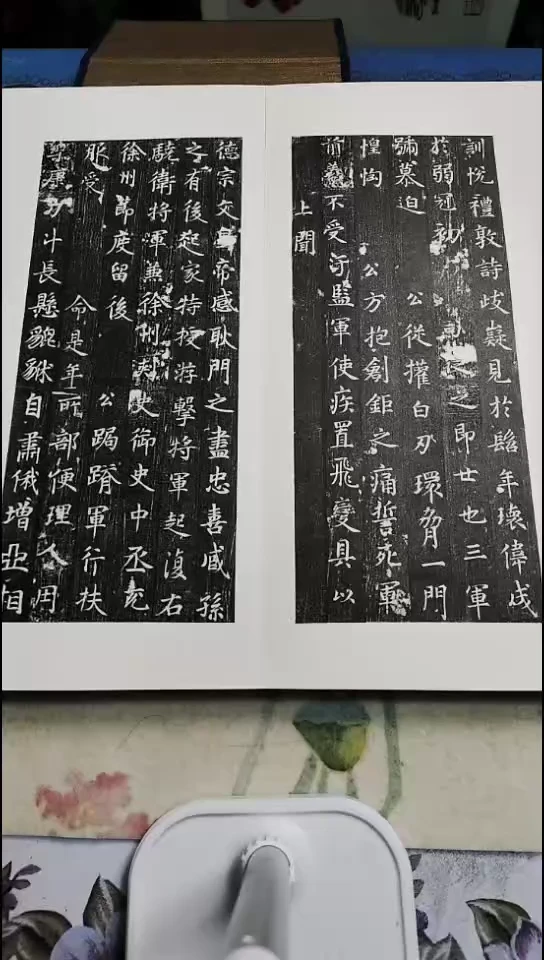 訓悅禮敦詩歧嶷見於髫年瓌偉成
於弱冠初之即世也三軍
號慕迫 公從擢白刃環脅一門
惶恟 公方抱創鉅之痛誓死軍
前義不受監軍使疾置飛變具以
上聞
德宗文皇帝感耿門之盡忠喜臧孫
之有後起家特授游擊將軍起復右
驍衛將軍兼徐州刺史御史中丞充
徐州節度留後 公跼蹐軍行扶
服受 命是年所部便理人用
寧康刁斗長懸貔貅自肅俄增亞相